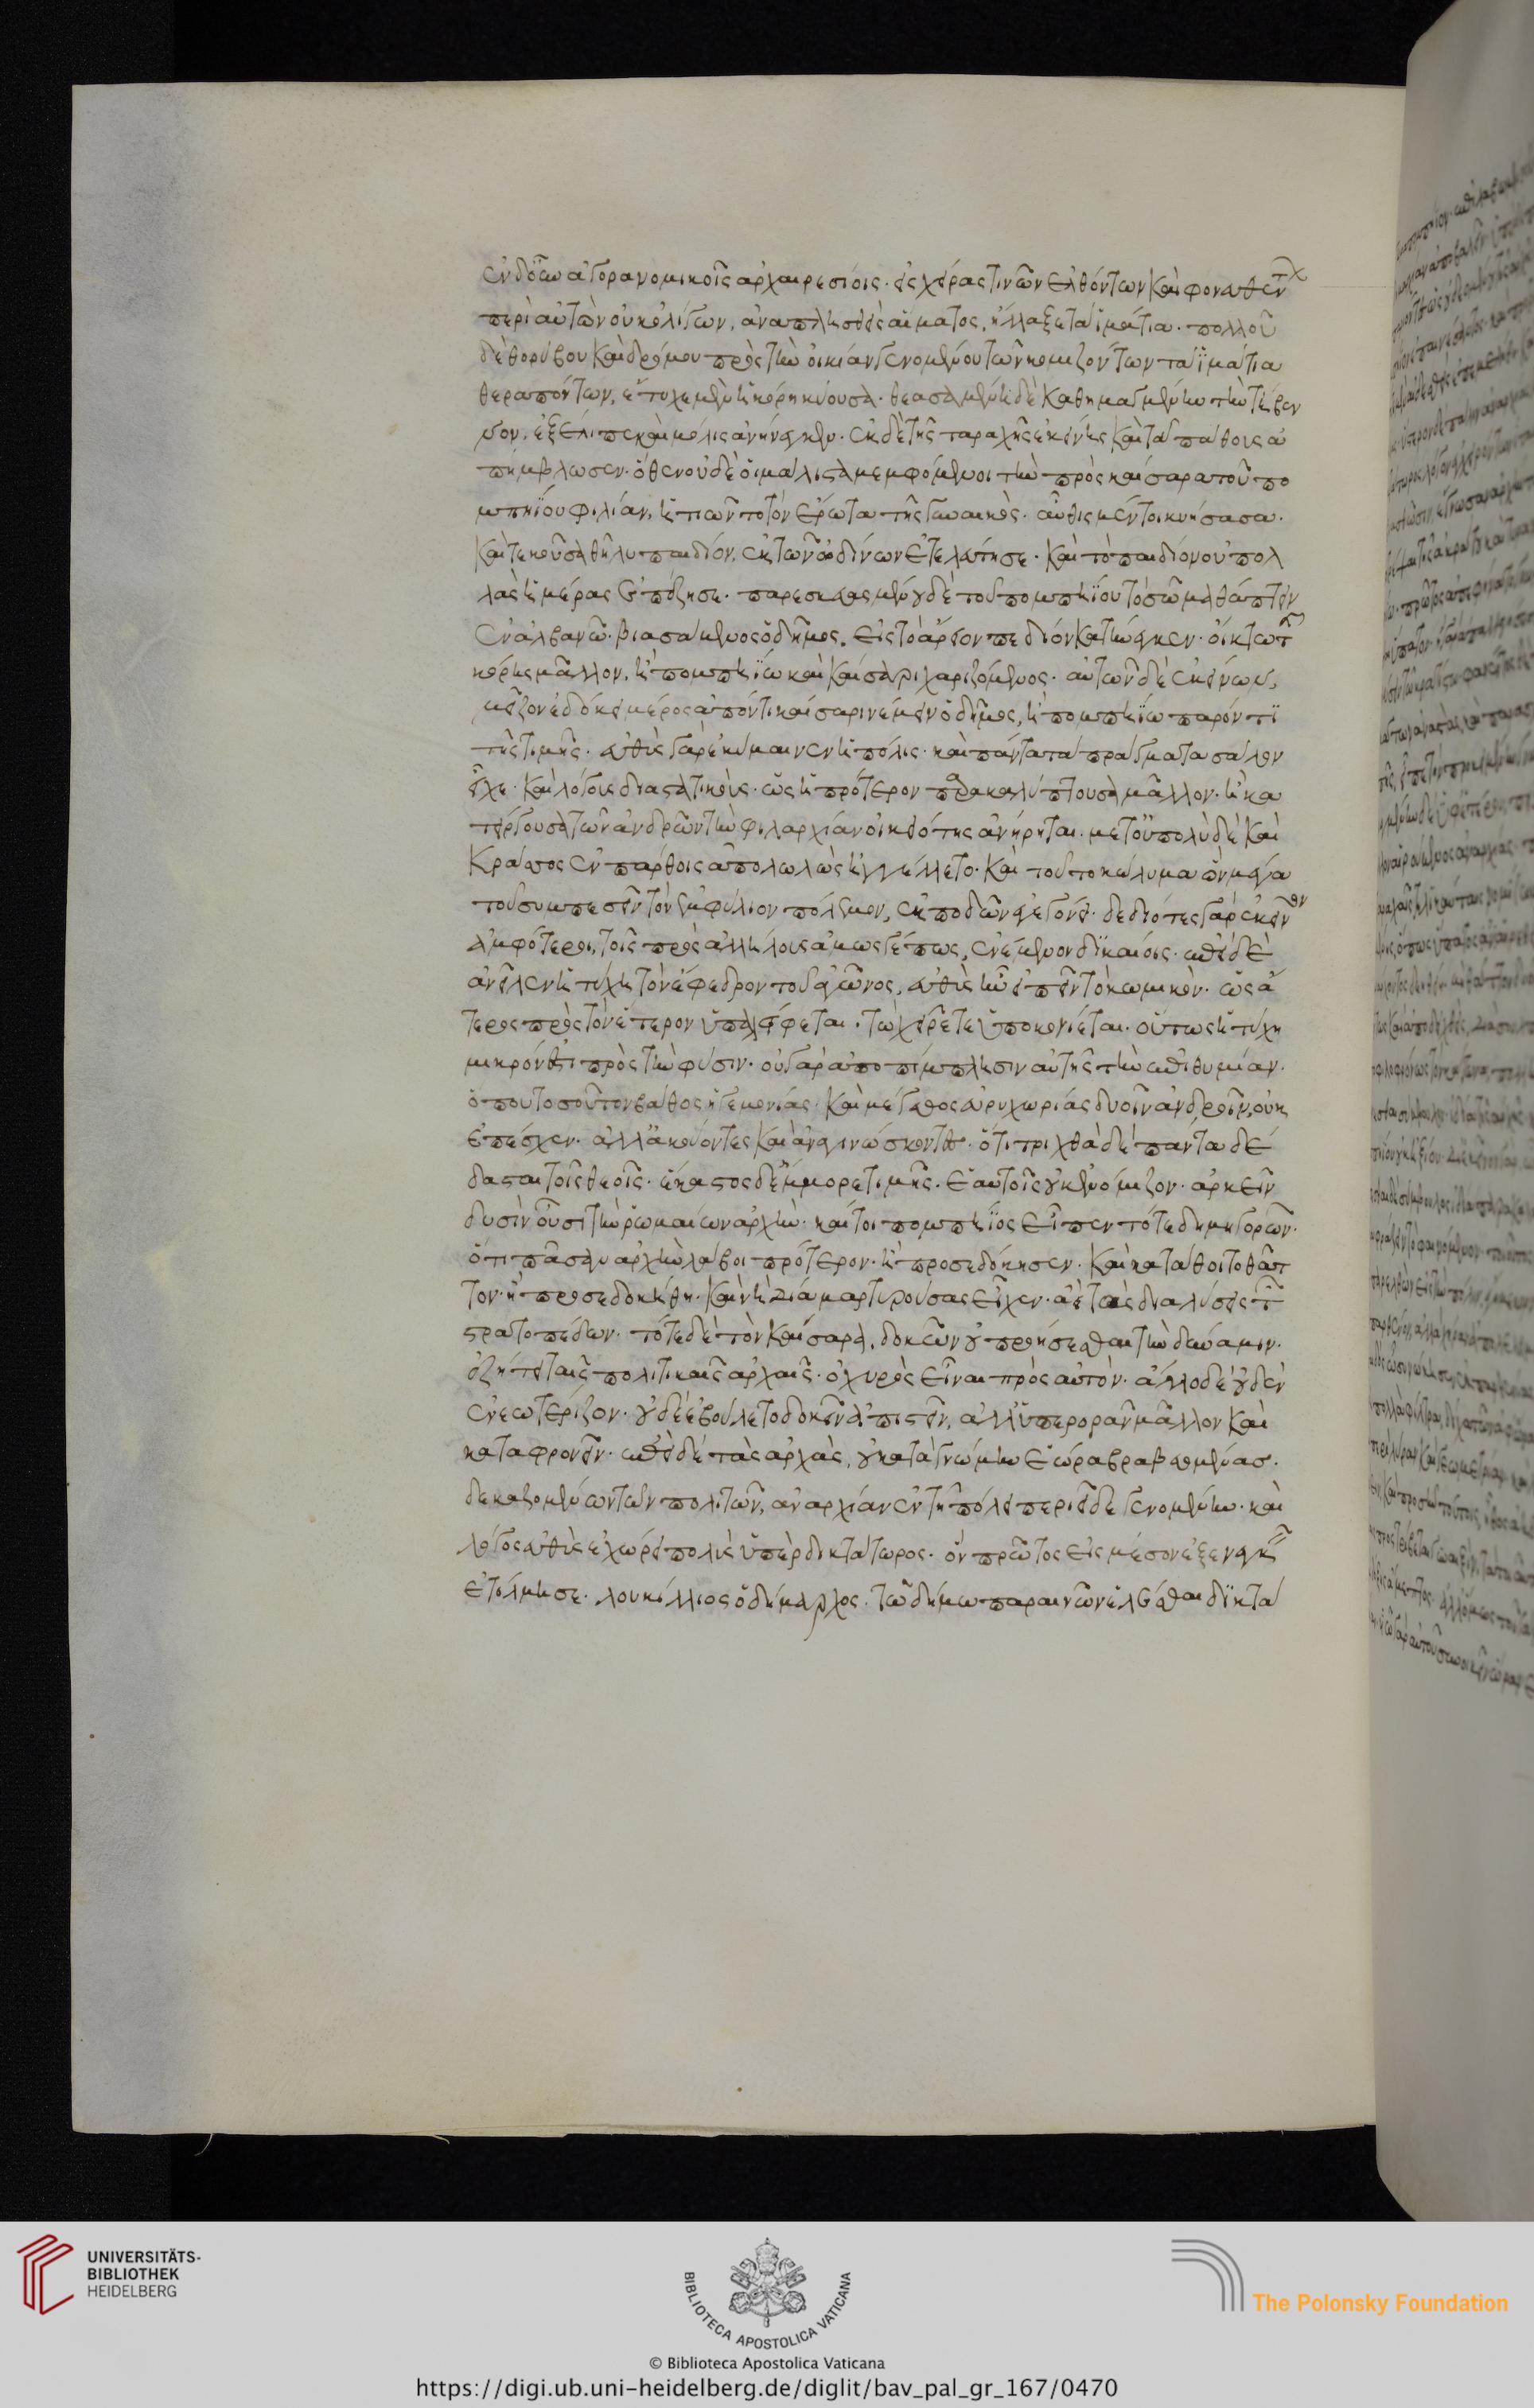 ἐν δ' οὖν ἀγορανομικοῖς ἀρχαιρεσίοις· εἰς χεῖράς τινῶν ἐλθόντων καὶ φονευθέντων
περὶ αὐτὸν οὐκ ὀλίγων, ἀναπλησθεὶς αἵματος, ἤλλαξε τὰ ἱμάτια. πολλοῦ
δὲ θορύβου καὶ δρόμου πρὸς τὴν οἰκίαν γενομένου τῶν κομιζόντων τὰ ἱμάτια
θεραπόντων, ἔτυχε μὲν ἡ κόρη κύουσα. θεασαμένη δὲ καθημαγμένην τὴν τήβεν
νον, ἐξέλιπε καὶ μόλις ἀνήνεγκεν. ἐκ δὲ τῆς ταραχῆς ἐκείνης καὶ τοῦ πάθους ἀ
πήμβλωσεν. ὅθεν οὐδὲ οἱ μάλιστα μεμφόμενοι τὴν πρὸς καίσαρα τοῦ πο
μπηΐου φιλίαν, ἠτιῶντο τὸν ἔρωτα τῆς γυναικός. αὖθις μέντοι κυήσασα.
καὶ τεκοῦσα θῆλυ παιδίον, ἐκ τῶν ὠδίνων ἐτελεύτησε. καὶ τὸ παιδίον οὐ πολ
λὰς ἡμέρας ἐπέζησε. παρεσκευασμένου δὲ τοῦ πομπηΐου τὸ σῶμα θάπτειν
ἐν ἀλβανῶ. βιασάμενος ὁ δῆμος, εἰς τὸ ἄρειον πεδίον κατήνεγκεν. οἴκτω τῆς
κόρης μᾶλλον, ἢ πομπηΐω καὶ καίσαρι χαριζόμενος. αὐτῶν δὲ ἐκείνων,
μεῖζον ἐδόκει μέρος ἀπόντι καίσαρι νέμειν ὁ δῆμος, ἢ πομπηΐω παρόντι
τῆς τιμῆς. εὐθὺς γὰρ ἐκύμαινεν ἡ πόλις. καὶ πάντα τὰ πράγματα σάλον
εἶχε. καὶ λόγους διαστατικοὺς. ὡς ἡ πρότερον παρακαλύπτουσα μᾶλλον. ἢ κα
τείργουσα τῶν ἀνδρῶν τὴν φιλαρχίαν οἰκειότης ἀνήρηται. μετ' οὐ πολὺ δὲ καὶ
κράσσος ἐν πάρθοις ἀπολωλὼς ἠγγέλλετο. καὶ τοῦτο κώλυμα ὂν μέγα
τοῦ συμπεσεῖν τὸν ἐμφύλιον πόλεμον, ἐκποδὼν ἐγεγόνει. δεδιότες γὰρ ἐκεῖνον
ἀμφότεροι, τοῖς πρὸς ἀλλήλους ἀμωσγέπως, ἐνέμενον δικαίοις. ἐπεὶ δὲ
ἀνεῖλεν ἡ τύχη τὸν ἔφεδρον τοῦ ἀγῶνος, εὐθὺς ἦν εἰπεῖν τὸ κωμικόν. ὡς ἅ
τερος πρὸς τὸν ἕτερον ὑπαλείφεται. τὼ χεῖρέ τε ὑποκονίεται. οὕτως ἡ τύχη
μικρόν ἐστι πρὸς τὴν φύσιν. οὐ γὰρ ἀποπίμπλησιν αὐτῆς τὴν ἐπιθυμίαν.
ὅπου τοσοῦτον βάθος ἡγεμονίας. καὶ μέγεθος εὐρυχωρίας δυοῖν ἀνδροῖν, οὐκ
ἐπέσχεν. ἀλλ' ἀκούοντες καὶ ἀναγινώσκοντες. ὅτι τριχθὰ δὲ πάντα δέ
δασται τοῖς θεοῖς. ἕκαστος δ' ἔμμορε τιμῆς. ἑαυτοῖς οὐκ ἐνόμιζον. ἀρκεῖν
δυσὶν οὖσι τὴν ῥωμαίων ἀρχήν. καίτοι πομπήϊος εἶπεν ποτε δημηγορῶν.
ὅτι πᾶσαν ἀρχὴν λάβοι πρότερον. ἢ προσεδόκησεν. καὶ κατάθοιτο θᾶτ
τον. ἢ προσεδοκήθη. καὶ νὴ Δία μαρτυρούσας εἶχεν. ἀεὶ τὰς διαλύσεις τῶν
στρατοπέδων. τότε δὲ τὸν καίσαρα, δοκῶν οὐ προήσεσθαι τὴν δύναμιν.
ἐζήτει ταῖς πολιτικαῖς ἀρχαῖς. ὀχυρὸς εἶναι πρὸς αὐτόν. ἄλλο δὲ οὐδὲν
ἐνεωτέριζον. οὐδὲ ἐβούλετο δοκεῖν ἀπιστεῖν, ἀλλ' ὑπερορᾶν μᾶλλον καὶ
καταφρονεῖν. ἐπεὶ δὲ τὰς ἀρχὰς, οὐ κατὰ γνώμην ἑώρα βραβευομένας.
δεκαζομένων τῶν πολιτῶν, ἀναρχίαν ἐν τῆ πόλει περιεῖδε γενομένην. καὶ
λόγος εὐθὺς ἐχώρει πολὺς ὑπὲρ δικτάτωρος. ὃν πρῶτος εἰς μέσον ἐξενεγκεῖν
ἐτόλμησε. λουκίλλιος ὁ δήμαρχος. τῶ δήμω παραινῶν ἑλέσθαι δικτά
UNIVERSITÄTS-
BIBLIOTHEK
HEIDELBERG
BIBLIOTECA APOSTOLICA VATICANA
The Polonsky Foundation
© Biblioteca Apostolica Vaticana
https://digi.ub.uni-heidelberg.de/diglit/bav_pal_gr_167/0470